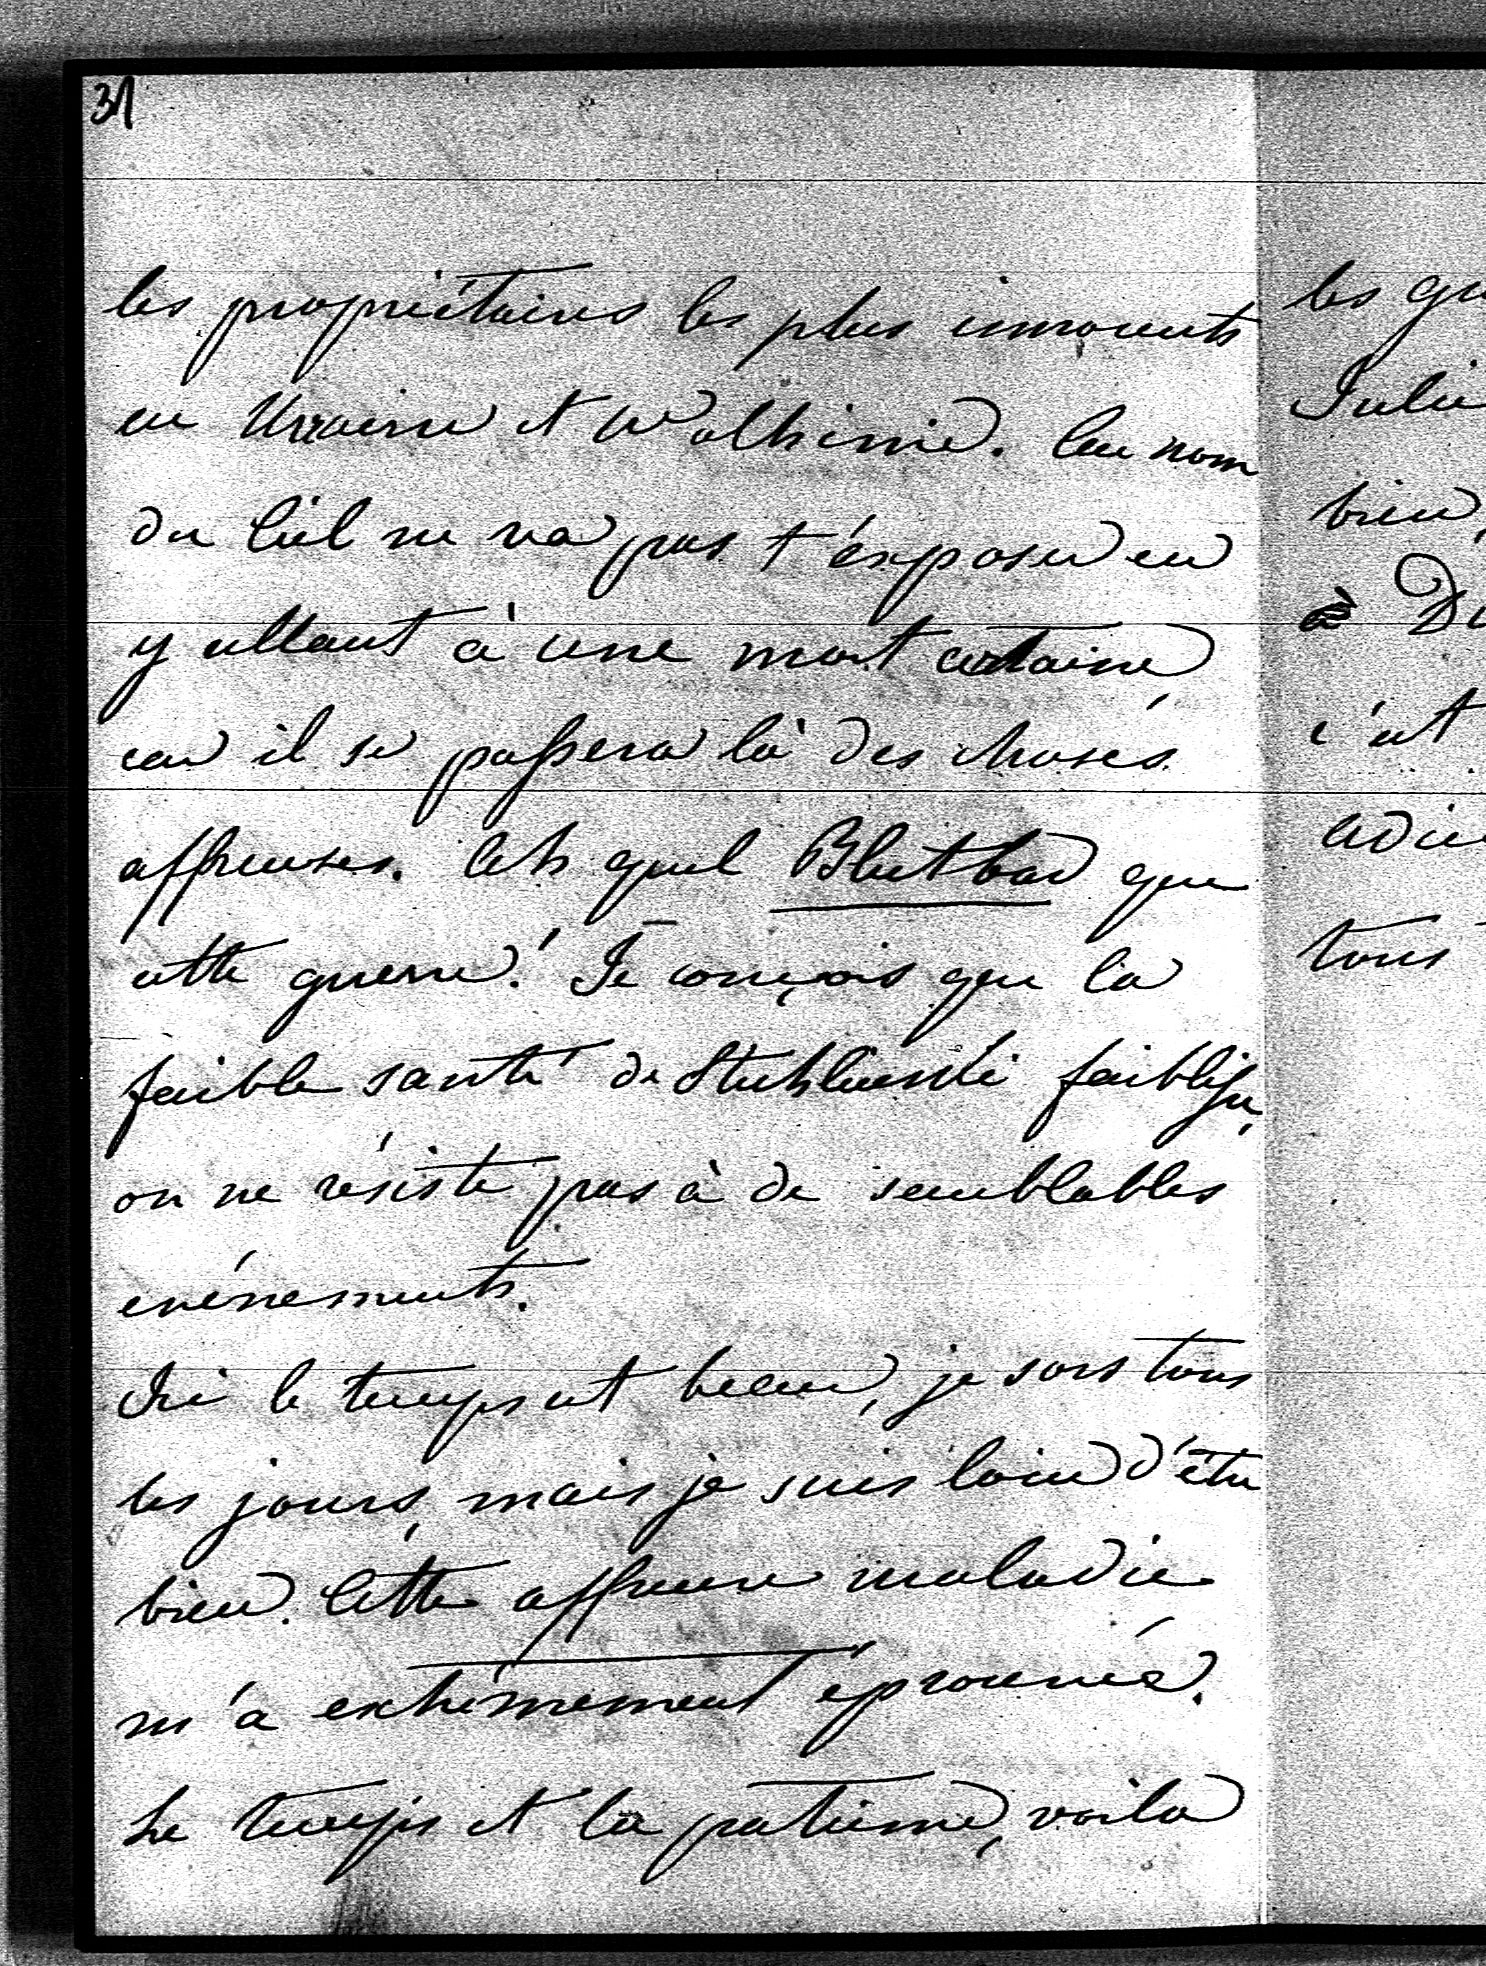 31
les propriétaires les plus innocents
en Ukraine et Wolhinie. Au nom
du Ciel ne va pas t'éxposer en
y allant à une mort certaine
car il se passera là des choses
affreuses. Ah quel Blutbad que
cette guerre! Je conçois que la
faible santé de faiblisse,
on ne résiste pas à de semblables
evénements.
Ici le temps est beau, je sors tous
les jours, mais je suis loin d'être
bien. Cette affreuse maladie
m'a extrêmement éprouvée.
Le temps et la patience, voila
les
Julie
bien,
à
c'est
adieu
tous